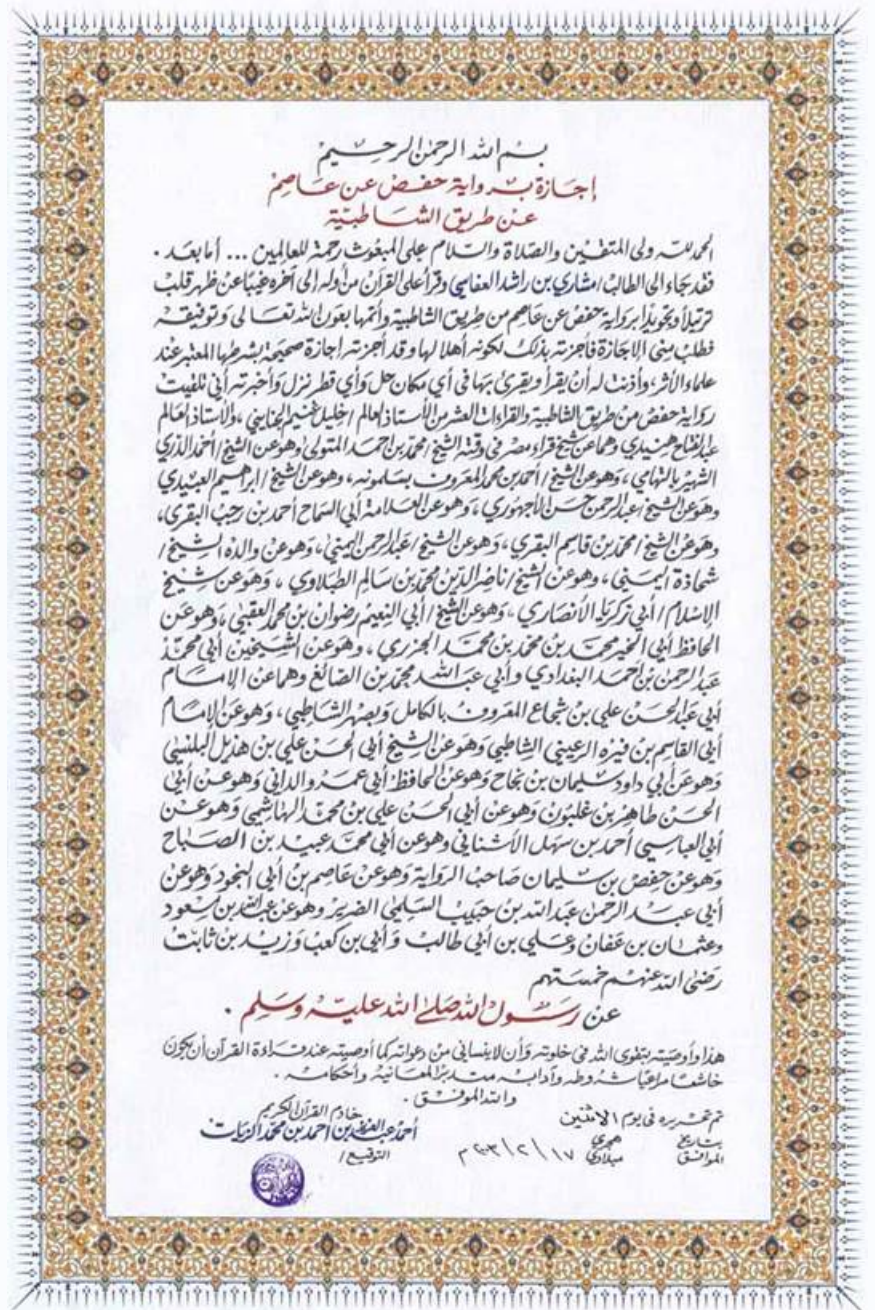 بسم الله الرحمن الرحيم
إجازة برواية حفص عن عاصم
عن طريق الشاطبية
الحمد لله ولي المتقين والصلاة والسلام على المبعوث رحمة للعالمين ... أما بعد .
فقد جاء الى الطالب / مشاري بن راشد العفاسي وقرأ على القرآن من أوله إلى آخره غيبًا عن ظهر قلب
ترتيلا وتجويدًا برواية حفص عن عاصم من طريق الشاطبية وأتمها بعون الله تعالى وتوفيقه
فطلب مني الإجازة فأجزته بذلك لكونه أهلا لها وقد أجزته إجازة صحيحة بشرطها المعتبر عند
علماء الأثر، وأذنت له أن يقرأ ويقرئ بها في أي مكان حل وأي قطر نزل وأخبرته أني تلقيت
رواية حفص من طريق الشاطبية والقراءات العشر من الأستاذ العالم / خليل غنيم الجنايني ، والأستاذ العالم
عبد الفتاح هنيدي وهما عن شيخ قراء مصر في وقته الشيخ / محمد بن احمد المتولي وهو عن الشيخ / أحمد الدري
الشهير بالتهامي ، وهو عن الشيخ / أحمد بن محمد المعروف بسلمونه ، وهو عن الشيخ / ابراهيم العبيدي
وهو عن الشيخ / عبد الرحمن حسن الأجهوري ، وهو عن العلامة أبي السماح أحمد بن رجب البقري ،
وهو عن الشيخ / محمد بن قاسم البقري ، وهو عن الشيخ / عبد الرحمن اليمني ، وهو عن والده الشيخ /
شحاذة اليمني ، وهو عن الشيخ / ناصر الدين محمد بن سالم الطبلاوي ، وهو عن شيخ
الإسلام / أبي زكريا الأنصاري ، وهو عن الشيخ / أبي النعيم رضوان بن محمد العقبي ، وهو عن
الحافظ أبي الخير محمد بن محمد بن محمد الجزري ، وهو عن الشيخين أبي محمد
عبد الرحمن بن احمد البغدادي وأبي عبد الله محمد بن الصائغ وهما عن الإمام
أبي عبد الحسن علي بن شجاع المعروف بالكامل وبصهر الشاطبي ، وهو عن الإمام
أبي القاسم بن فيره الرعيني الشاطبي وهو عن الشيخ أبي الحسن علي بن هذيل البلنسي
وهو عن أبي داود سليمان بن نجاح وهو عن الحافظ / أبي عمرو الداني وهو عن أبي
الحسن طاهر بن غلبون وهو عن أبي الحسن علي بن محمد الهاشمي وهو عن
أبي العباسي أحمد بن سهل الأشناني وهو عن أبي محمد عبيد بن الصباح
وهو عن حفص بن سليمان صاحب الرواية وهو عن عاصم بن أبي النجود وهو عن
أبي عبد الرحمن عبد الله بن حبيب السلمي الضرير وهو عن عبد الله بن مسعود
وعثمان بن عفان وعلي بن أبي طالب وأبي بن كعب وزيد بن ثابت
رضي الله عنهم خمستهم
عن رسول الله صلى الله عليه وسلم .
هذا وأوصيته بتقوى الله في خلوته وأن لا ينساني من دعواته كما أوصيته عند قراءة القرآن أن يكون
خاشعا مراعيا شروطه وآدابه متدبرًا لمعانيه وأحكامه .
والله الموفق .
تم تحريره في يوم الاثنين
بتاريخ هجري
الموافق ميلادي ١٧ / ٢ / ٢٠٠٣ م
خادم القرآن الكريم
أحمد عبد العزيز بن أحمد بن محمد الزيات
التوقيع /